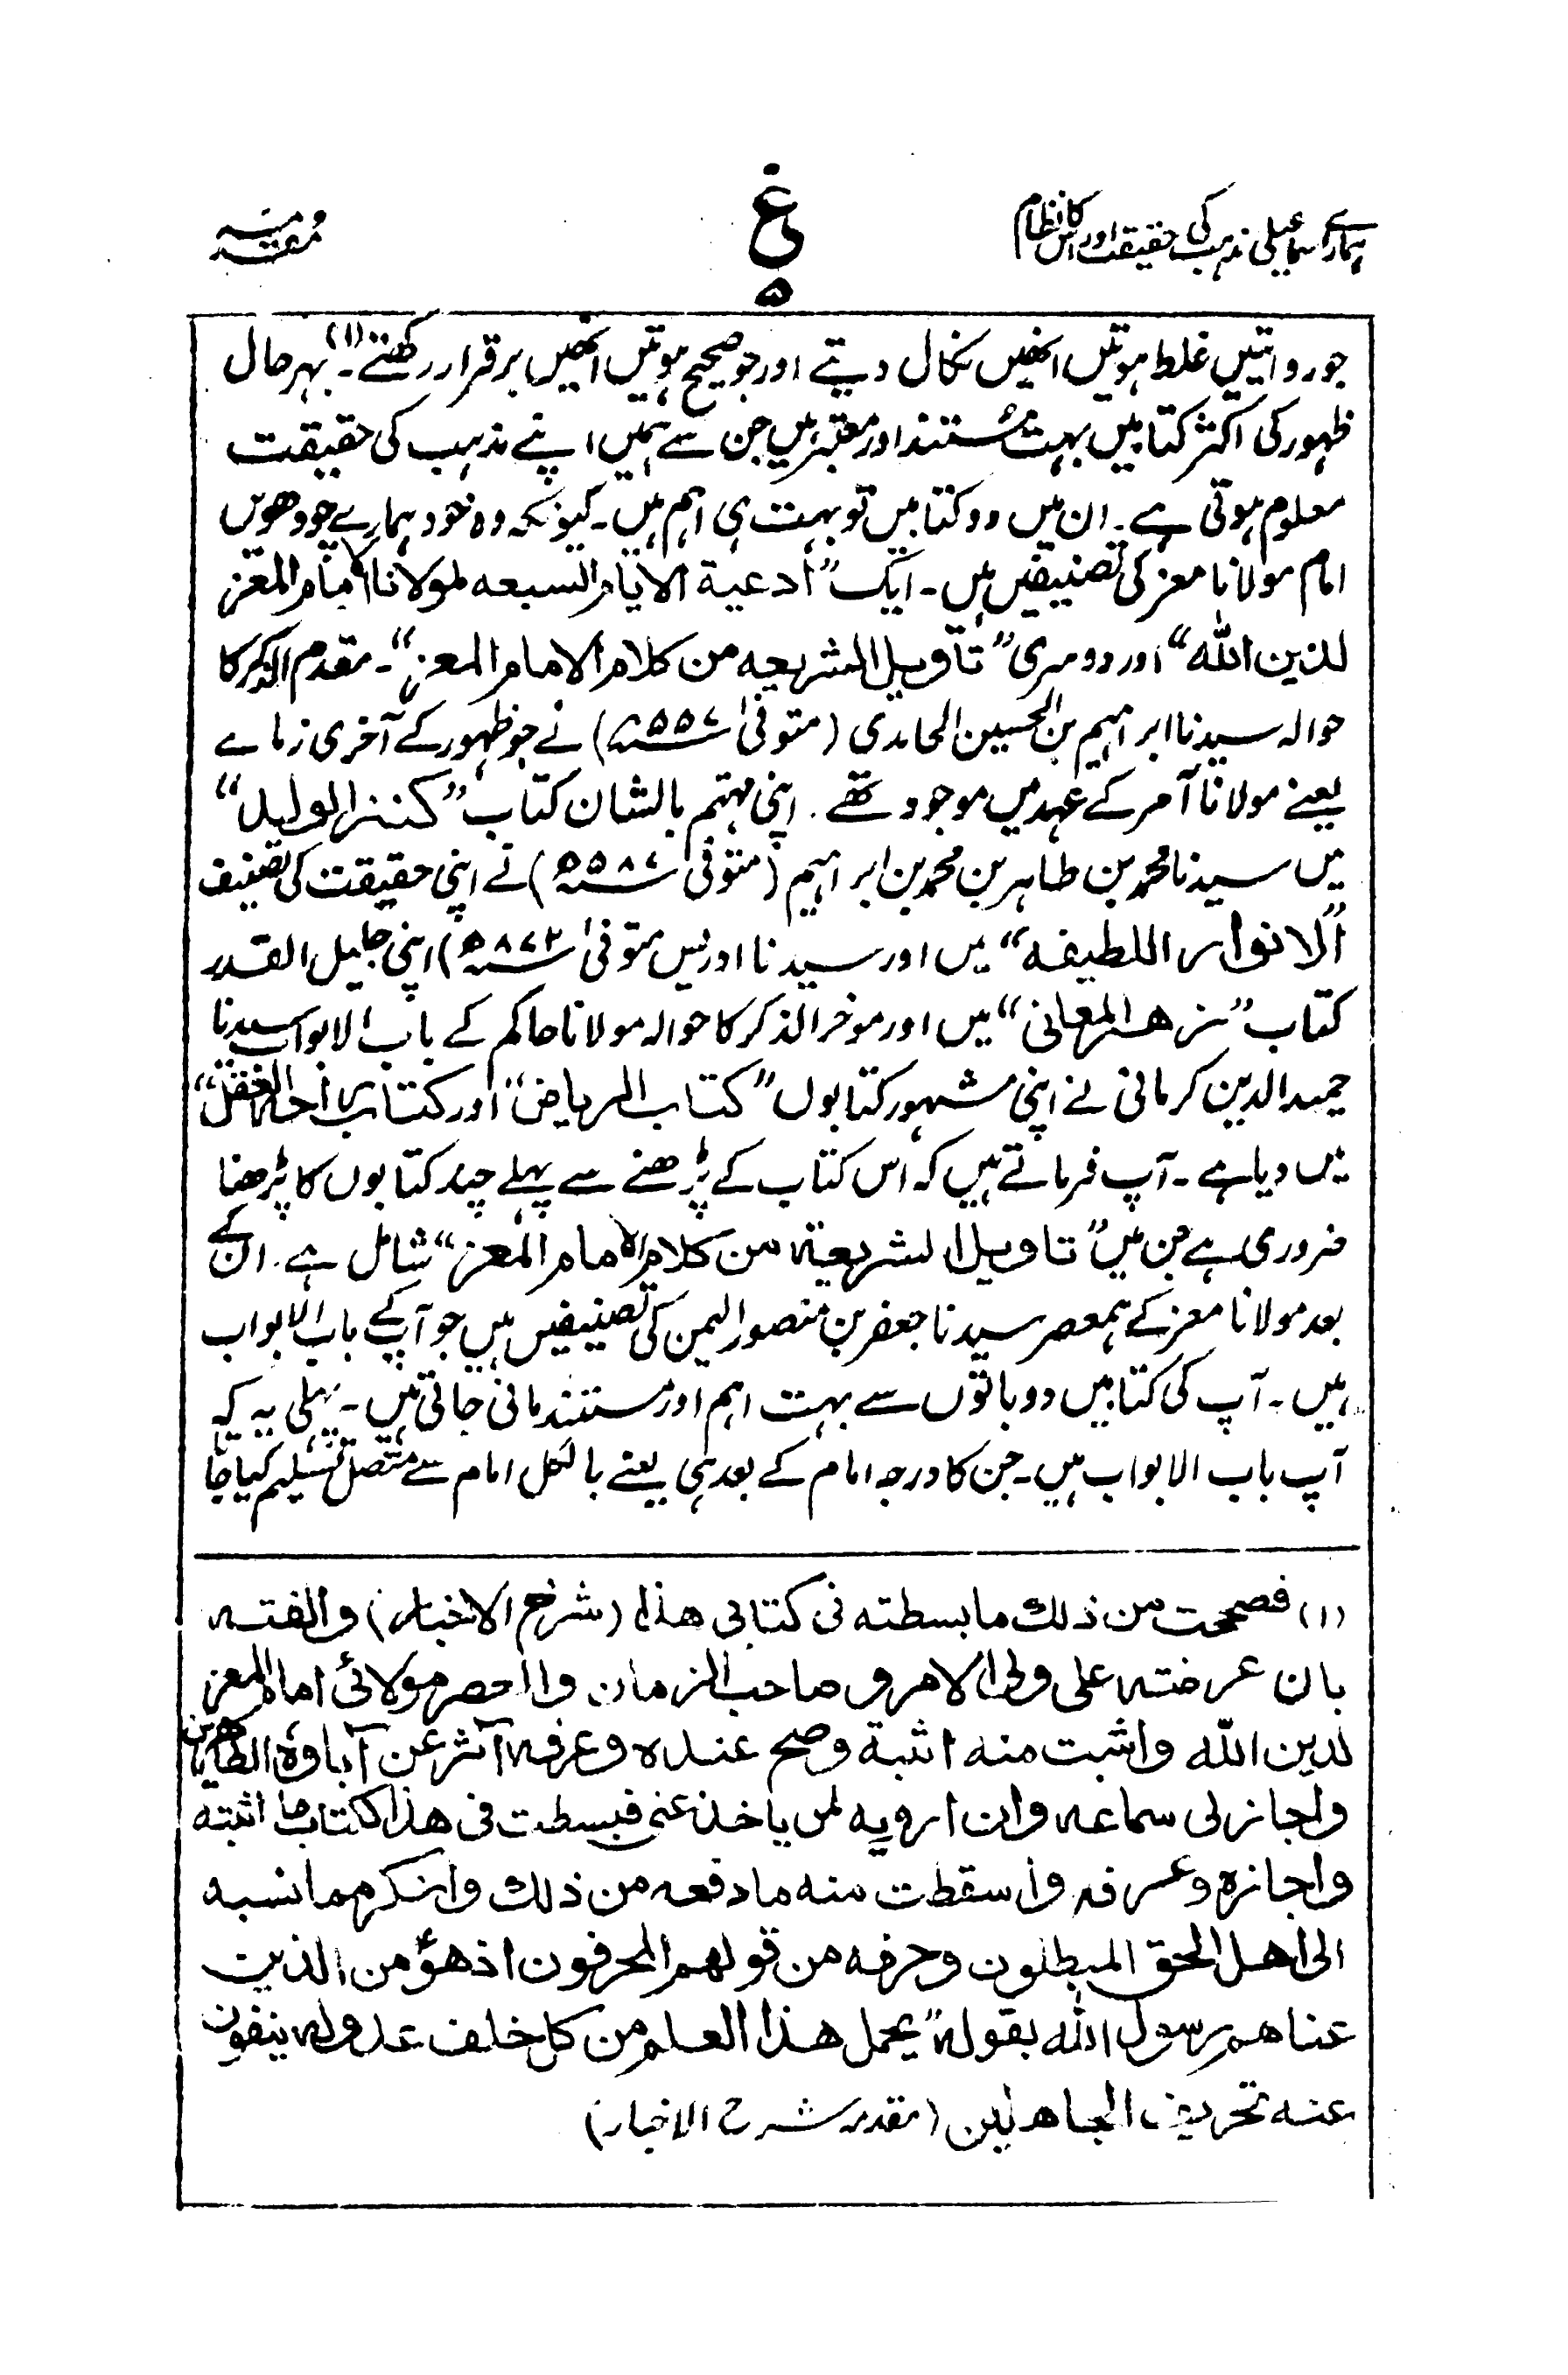 ہمارے اسماعیلی مذہب کی حقیقت اور اس کا نظام
غ
۵
مقدمہ
جو روایتیں غلط ہوتیں انھیں نکال دیتے اور جو صحیح ہوتیں انھیں برقرار رکھتے۔(۱) بہرحال
ظہور کی اکثر کتابیں بہت مستند اور معتبر ہیں جن سے ہمیں اپنے مذہب کی حقیقت
معلوم ہوتی ہے۔ ان میں دو کتابیں تو بہت ہی اہم ہیں۔ کیونکہ وہ خود ہمارے چودھویں
امام مولانا معز کی تصنیفیں ہیں۔ ایک "أدعیة الایام السبعه لمولانا الامام المعز
لدین الله" اور دوسری "تاویل الشریعه من کلام الامام المعز"۔ مقدم الذکر کا
حوالہ سیدنا ابراہیم بن الحسین الحامدی (متوفیٰ ۵۵۷ھ) نے جو ظہور کے آخری زمانے
یعنے مولانا آمر کے عہد میں موجود تھے۔ اپنی مہتم بالشان کتاب "کنز الولد"
میں سیدنا محمد بن طاہر بن محمد بن ابراہیم (متوفیٰ ۵۸۴ھ) نے اپنی حقیقت کی تصنیف
"الانوار اللطیفه" میں اور سیدنا ادریس متوفیٰ ۸۷۲ھ) اپنی جلیل القدر
کتاب "زهر المعانی" میں اور موخر الذکر کا حوالہ مولانا حاکم کے باب الابواب سیدنا
حمید الدین کرمانی نے اپنی مشہور کتابوں "کتاب الریاض" اور کتاب راحة العقل"
میں دیا ہے۔ آپ فرماتے ہیں کہ اس کتاب کے پڑھنے سے پہلے چند کتابوں کا پڑھنا
ضروری ہے جن میں "تاویل الشریعة من کلام الامام المعز" شامل ہے۔ ان کے
بعد مولانا معز کے ہمعصر سیدنا جعفر بن منصور الیمن کی تصنیفیں ہیں جو آپ کے باب الابواب
ہیں۔ آپ کی کتابیں دو باتوں سے بہت اہم اور مستند مانی جاتی ہیں۔ پہلی یہ کہ
آپ باب الابواب ہیں۔ جن کا درجہ امام کے بعد ہی یعنے بالکل امام سے متصل تسلیم کیا جا
(۱) فصححت من ذلك ما بسطته فی کتابی هذا (شرح الاخبار) والفته
بان عرضته علی ولی الامر و صاحب الزمان و مولائی امام المعز
لدین الله واثبت منه اثبة وصح عنده وعرفه آثر عن آباوه الطاهرین
واجاز لی سماعه وان ارویه لمن یاخذ عنی فبسطت فی هذا لکتاب ما اثبته
واجازه وعرفه واسقطت منه ما دفعه من ذلك وانکر مما نسبه
الی اهل الحق المبطلون وحرفه من قولهم المحرفون اذ هؤ من الذین
عناهم رسول الله بقوله "یحمل هذا العلم من کل خلف عدوله ینفون
عنه تحریف الجاهلین (مقدمہ شرح الاخبار)